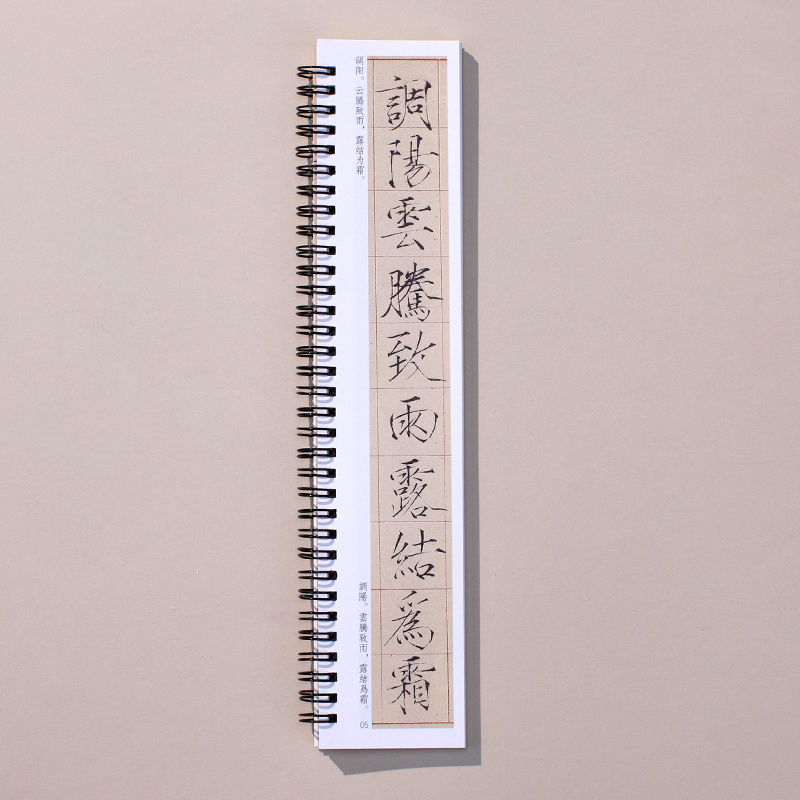 調陽雲騰致雨露結爲霜
调阳。云腾致雨，露结为霜。
調陽。雲騰致雨，露結爲霜。
05